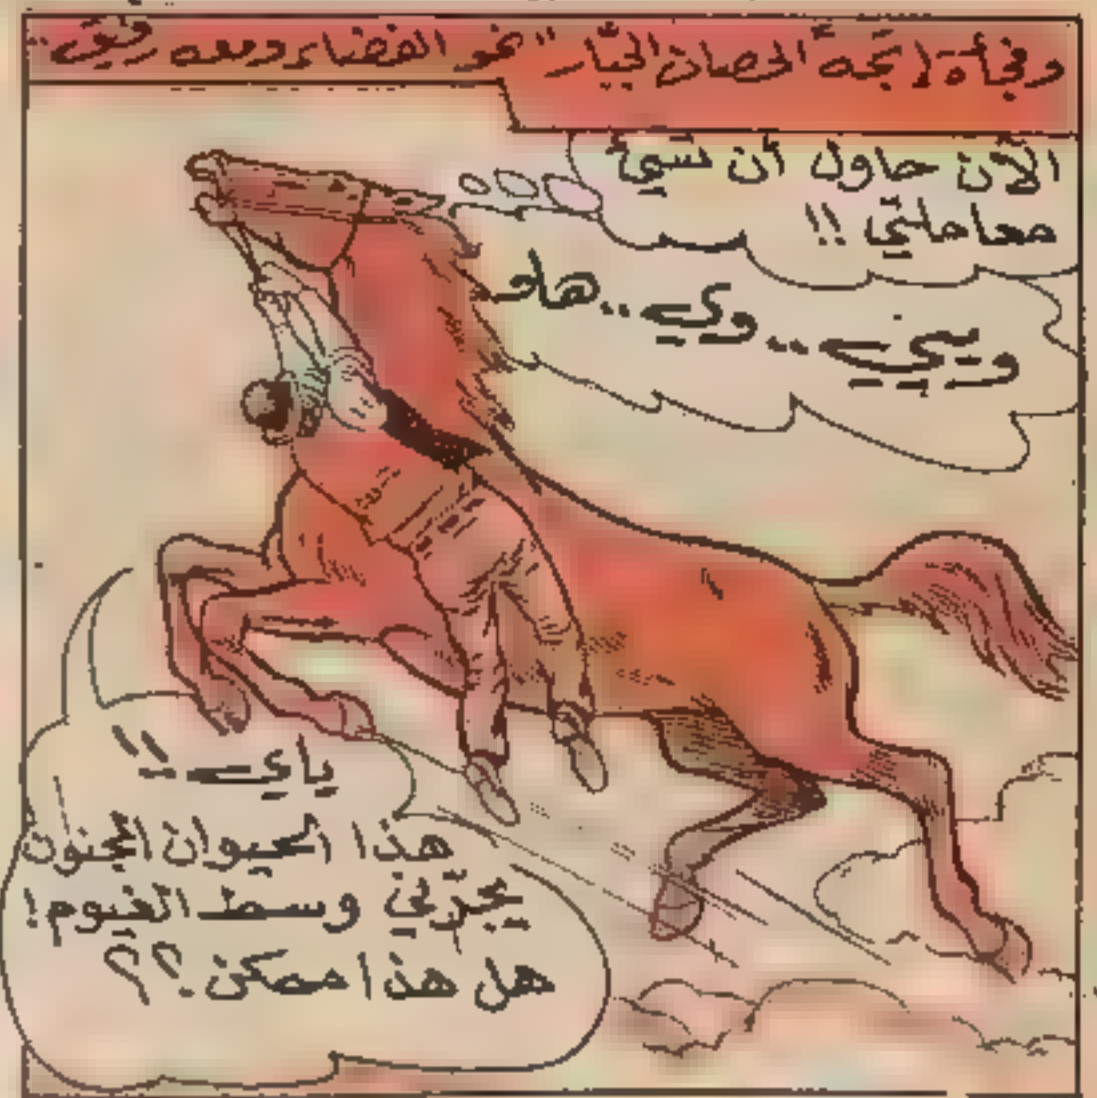 وفجأة اتجه "الحصان الجبّار" نحو الفضاء ومعه رفيق..
الآن حاول أن تسيء
معاملتي !!
ويييي .. وي .. هاو
ياي !!
هذا الحيوان المجنون
يجرّني وسط الغيوم!
هل هذا ممكن .؟؟